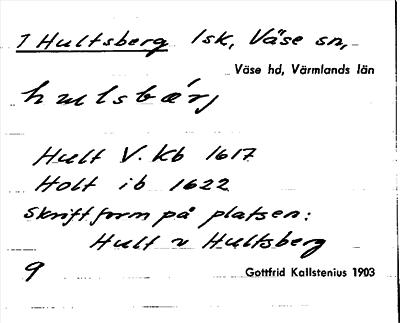 1 Hultsberg lsk, Väse sn,
Väse hd, Värmlands län
hulsbárj
Hult V. Kb 1617
Holt ib 1622
Skriftform på platsen:
Hult v Hultsberg
9
Gottfrid Kallstenius 1903